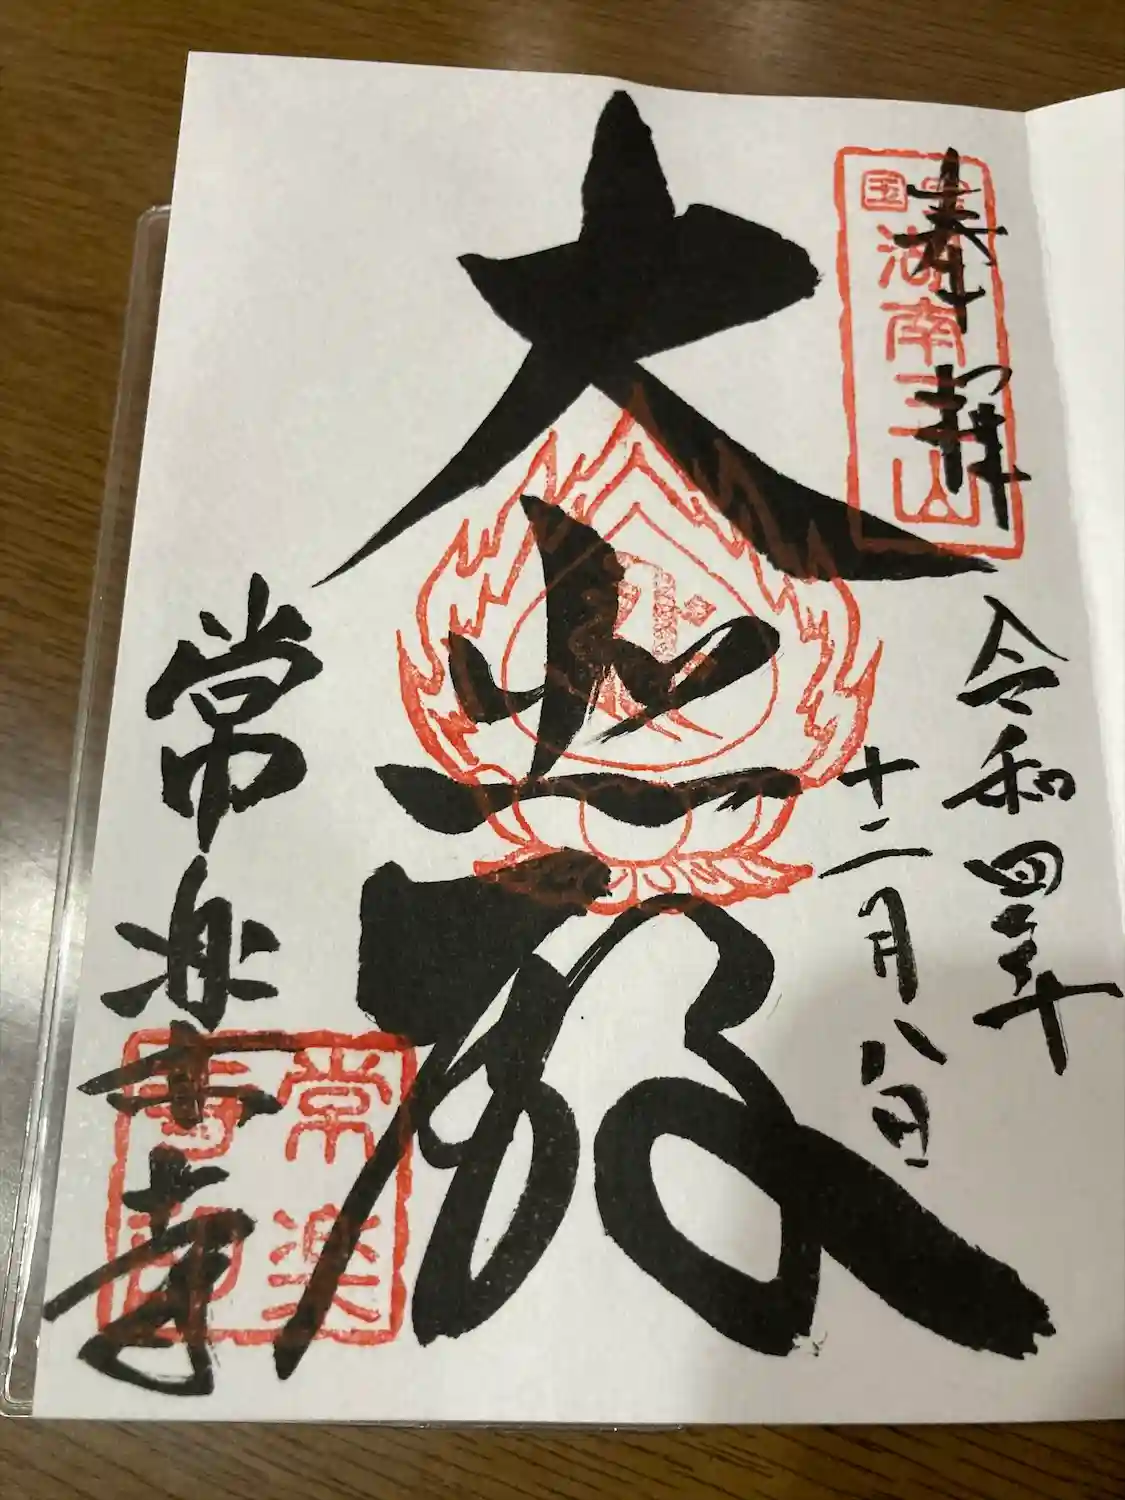 奉拝
国宝
湖南三山
令和四年
十二月八日
大悲殿
常楽寺
常楽
寺印